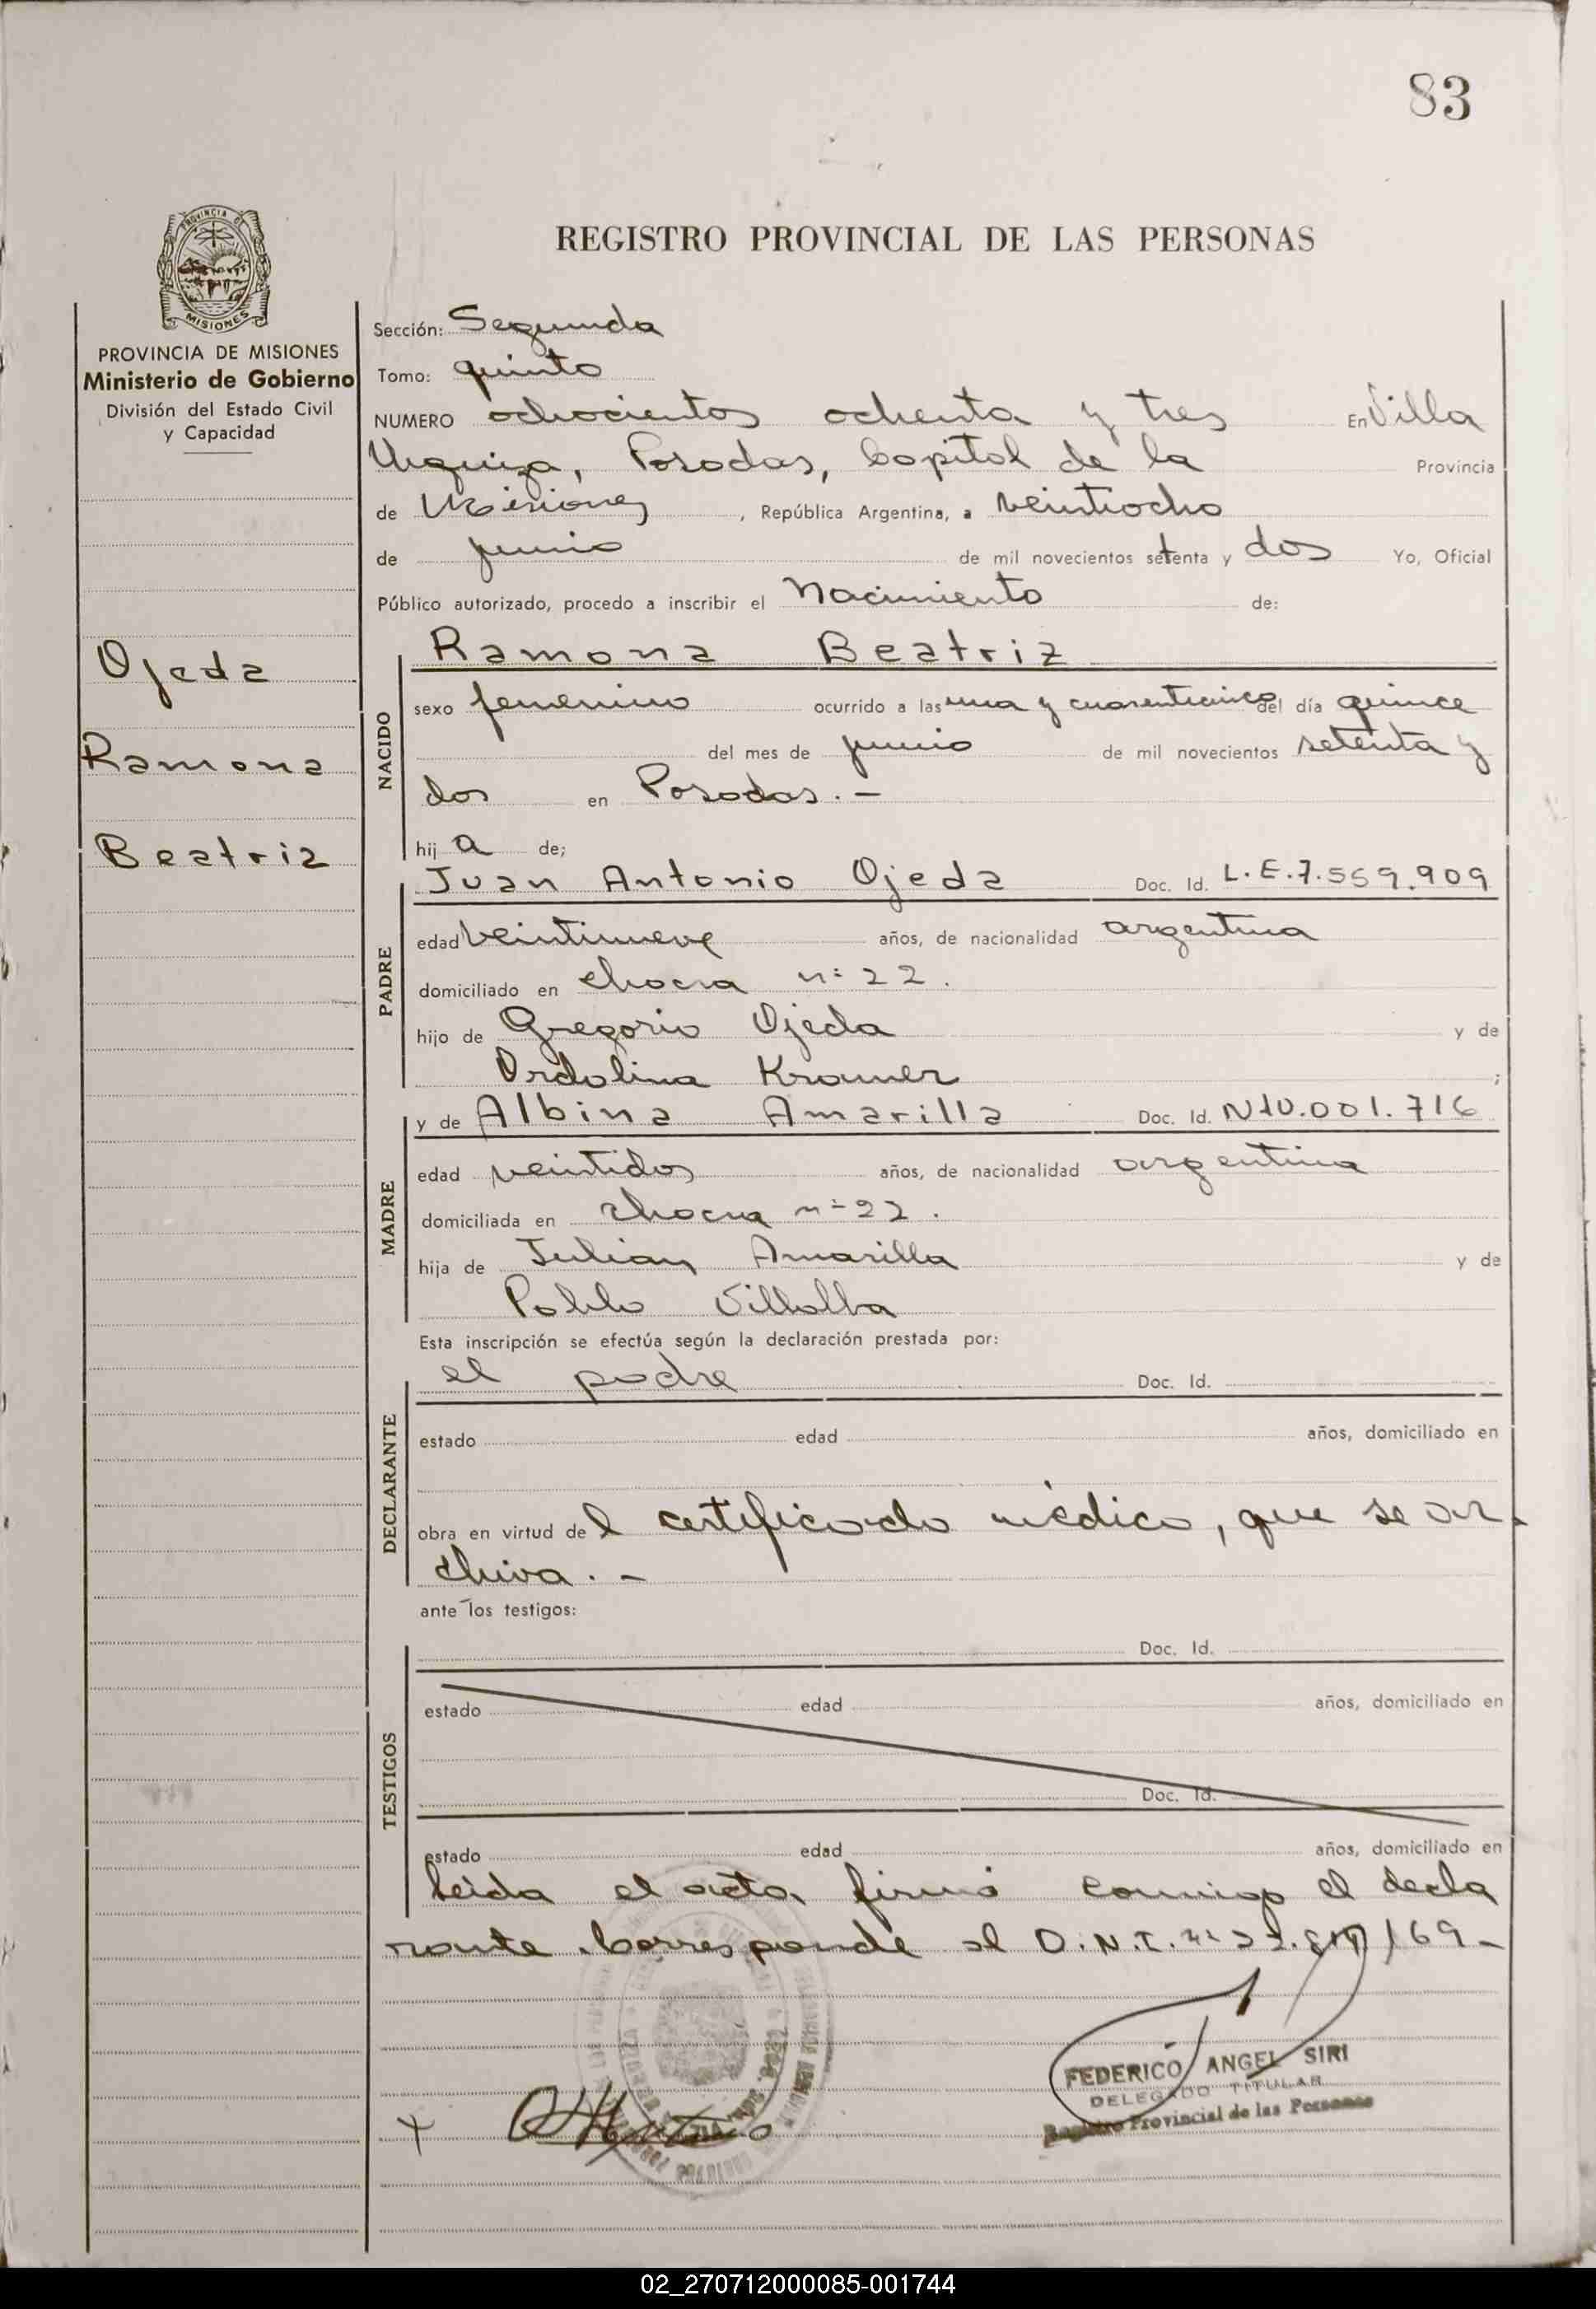 83
PROVINCIA DE
MISIONES
REGISTRO PROVINCIAL DE LAS PERSONAS
PROVINCIA DE MISIONES
Ministerio de Gobierno
División del Estado Civil
y Capacidad
Ojeda
Ramona
Beatriz
Sección: Segunda
Tomo: quinto
NUMERO ochocientos ochenta y tres En Villa
Urquiza, Posadas, Capital de la Provincia
de Misiones, República Argentina, a veintiocho
de junio de mil novecientos setenta y dos Yo, Oficial
Público autorizado, procedo a inscribir el Nacimiento de:
NACIDO
Ramona Beatriz
sexo femenino ocurrido a las una y cuarenticinco del día quince
del mes de junio de mil novecientos setenta y
dos en Posadas.-
hija de;
PADRE
Juan Antonio Ojeda Doc. Id. L.E.7.559.909
edad veintinueve años, de nacionalidad argentina
domiciliado en chacra nº 22.
hijo de Gregorio Ojeda y de
Ordolina Kramer ;
MADRE
y de Albina Amarilla Doc. Id. N10.001.716
edad veintidos años, de nacionalidad argentina
domiciliada en chacra nº 22.
hija de Julian Amarilla y de
Pablo Villalba
Esta inscripción se efectúa según la declaración prestada por:
DECLARANTE
el padre Doc. Id.
estado edad años, domiciliado en
obra en virtud del certificado médico, que se ar-
chiva.-
ante los testigos:
TESTIGOS
Doc. Id.
estado edad años, domiciliado en
Doc. Id.
estado edad años, domiciliado en
Leida el acta, firmó conmigo el decla
rante. Corresponde al D.N.I. /69-
FEDERICO ANGEL SIRI
DELEGADO TITULAR
Registro Provincial de las Personas
02_270712000085-001744